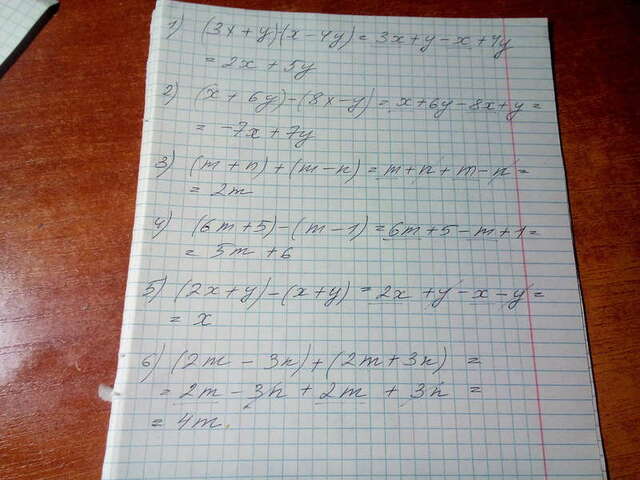 1) (3x+y)(x-4y)= 3x+y-x+4y
= 2x + 5y
2) (x+6y)-(8x-y)= x+6y-8x+y=
= -7x+7y
3) (m+n)+(m-n)= m+n+m-n=
= 2m
4) (6m+5)-(m-1)=6m+5-m+1=
= 5m+6
5) (2x+y)-(x+y)= 2x+y-x-y=
= x
6) (2m-3n)+(2m+3n) =
= 2m-3n+2m+3n =
= 4m.